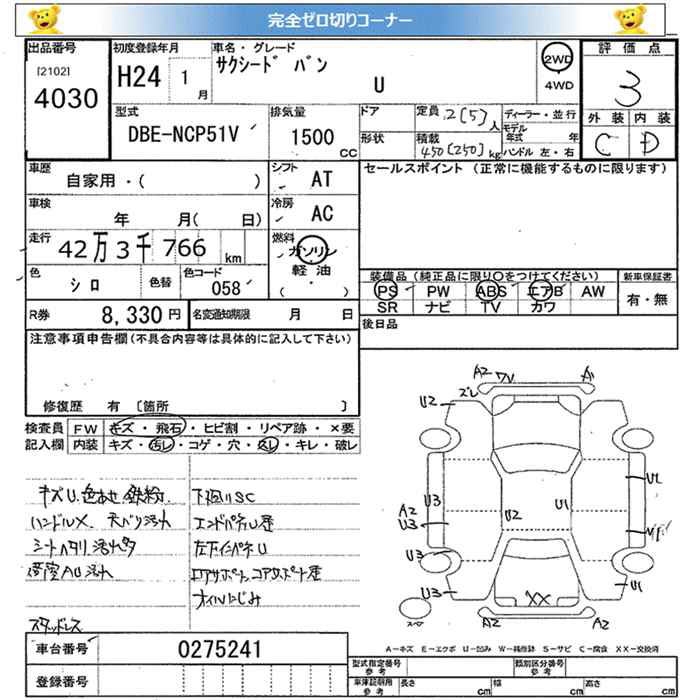 完全ゼロ切りコーナー
出品番号
[2102]
4030
初度登録年月
H24 1月
車名・グレード
サクシード バン
U
2WD
4WD
評価点
3
外装 内装
C D
型式
DBE-NCP51V
排気量
1500
CC
ドア
形状
定員 2[5]人
積載 450[250]kg
ディーラー・並行
モデル年式 年
ハンドル 左・右
車歴
自家用・( )
シフト
AT
セールスポイント (正常に機能するものに限ります)
車検
年 月( 日)
冷房
AC
走行
42万3千766
km
燃料
ガソリン
軽油
( ・ )
色
シロ
色替
色コード
058
装備品 (純正品に限り○をつけてください)
PS PW ABS エアB AW
SR ナビ TV カワ
新車保証書
有・無
R券
8,330円
名変通知期限 月 日
後日品
注意事項申告欄(不具合内容等は具体的に記入して下さい)
修復歴 有 [箇所 ]
検査員
記入欄
FW キズ・飛石・ヒビ割・リペア跡・×要
内装 キズ・汚レ・コゲ・穴・スレ・キレ・破レ
キズU、色あせ、鉄粉
ハンドルX 天バリ汚れ
シートヘタリ、汚れ多
荷室AU汚れ
スタッドレス
下廻りSC
エンドパネU歴
左下インパネU
コアサポート、コアサポート歴
オイルにじみ
A2
U2
ズレ
A2
U3
U3
U3
U2
U1
XX
A2
A2
U1
A－キズ E－エクボ U－凹み W－補修跡 S－サビ C－腐食 XX－交換済
車台番号
0275241
登録番号
型式指定番号
参考
類別区分番号
参考
車庫証明用
参考
長さ cm
幅 cm
高さ cm